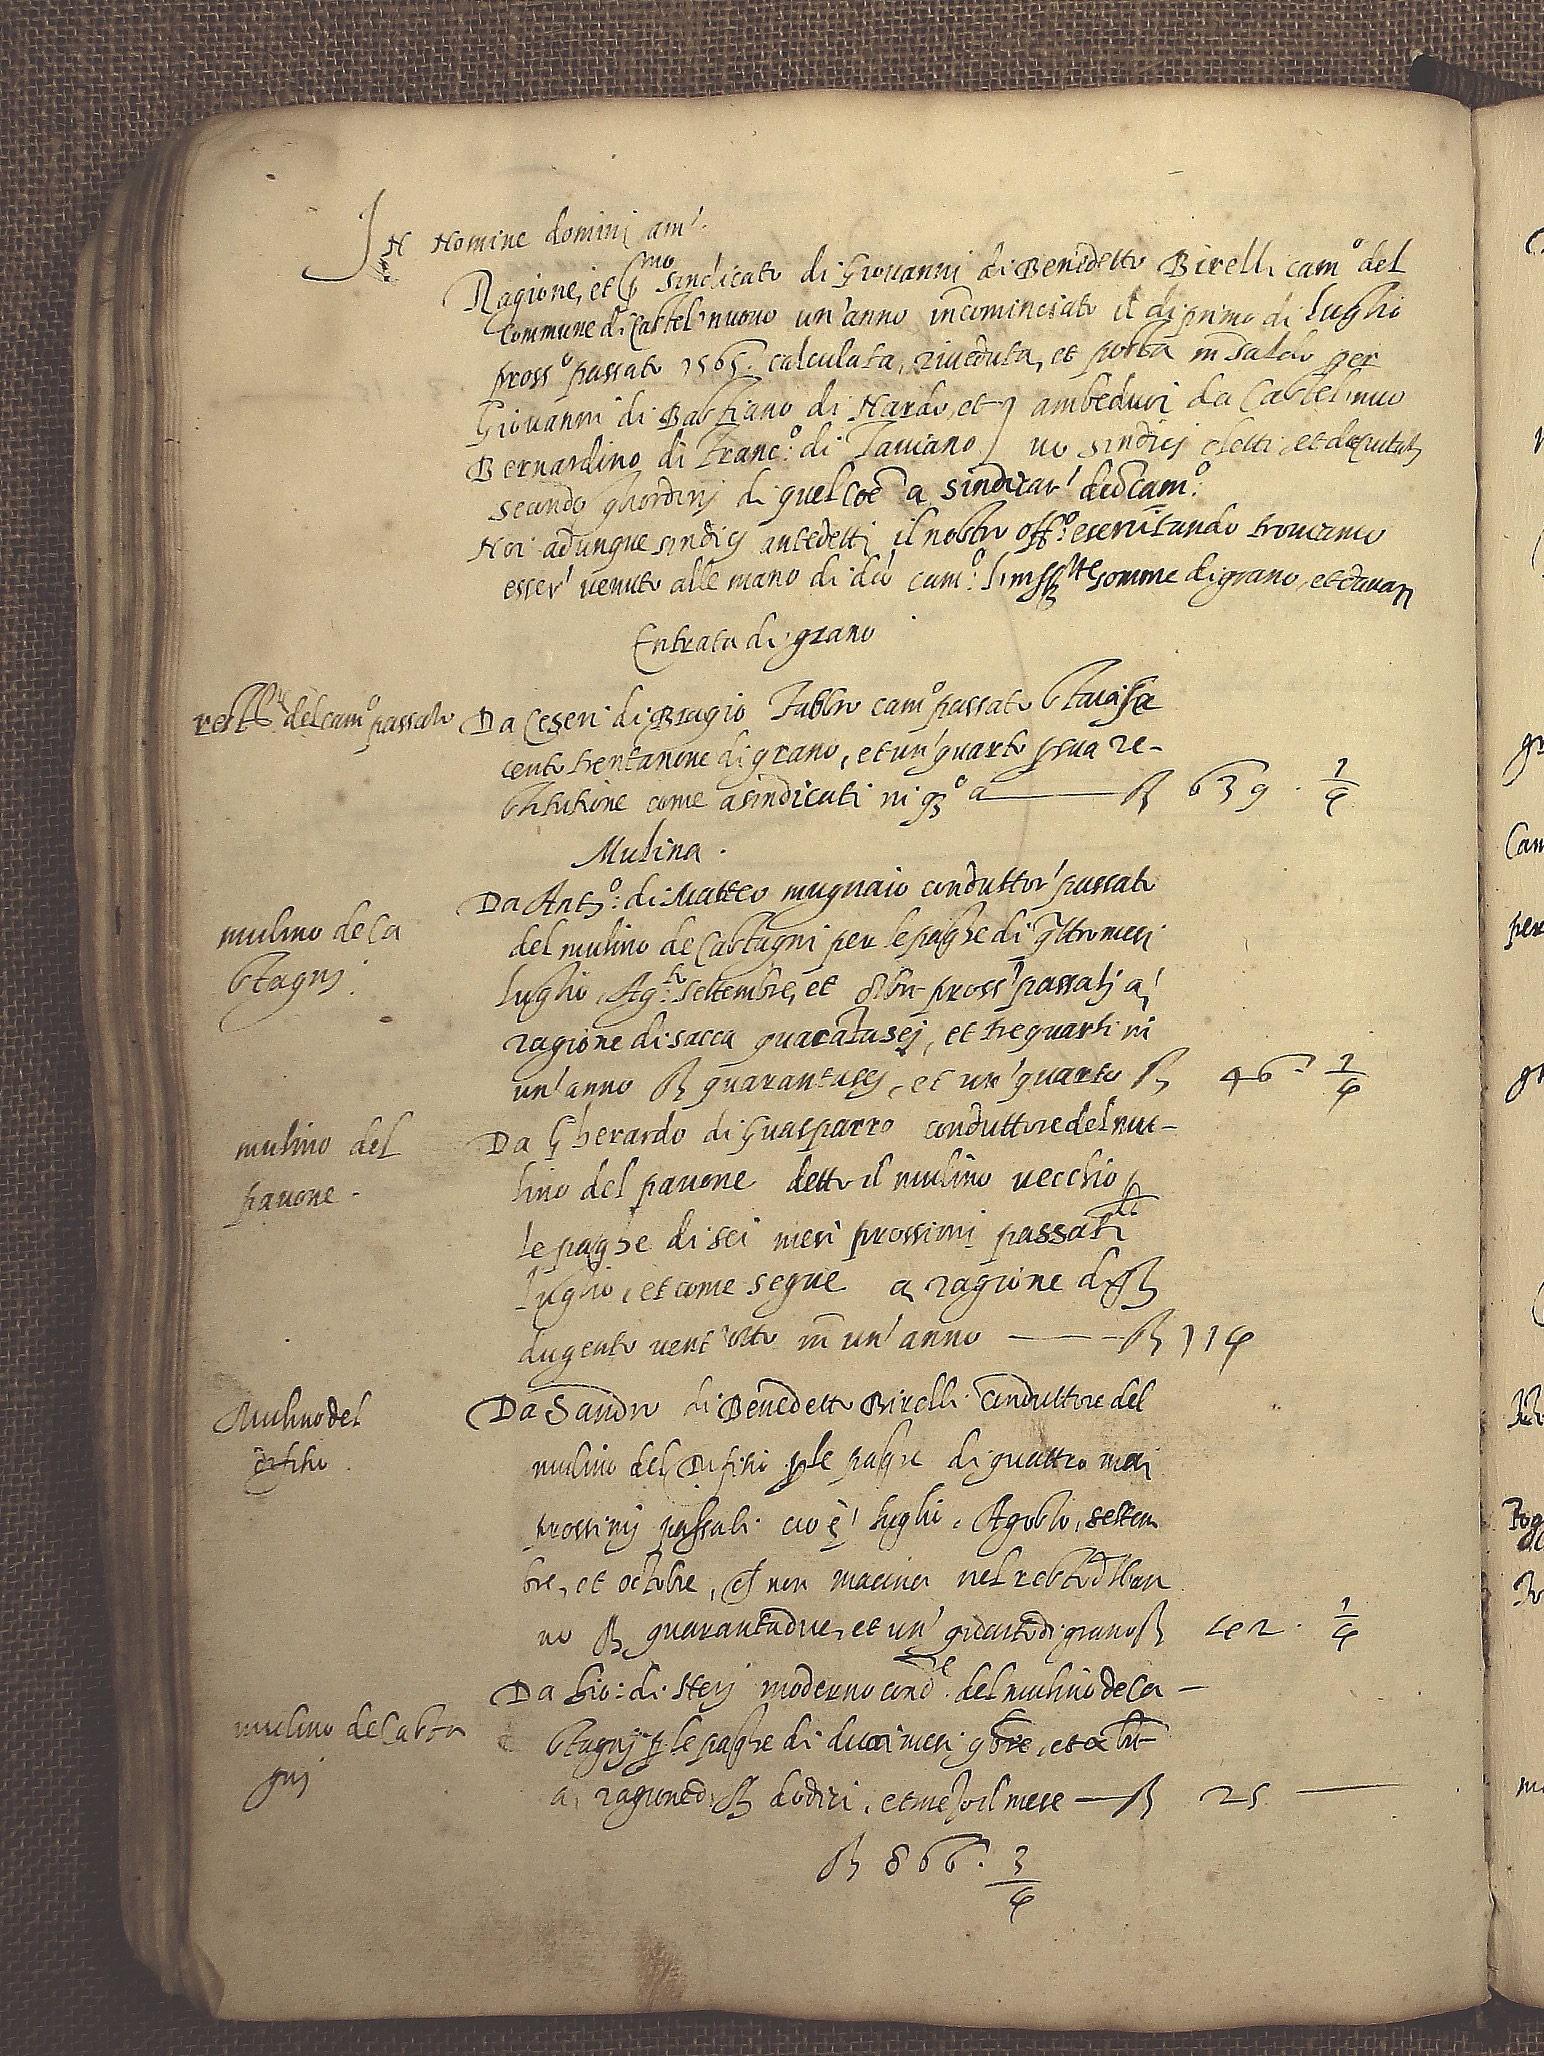 In Nomine dominj am'.
Ragione, et smo sindicato di Giovanni di Benedetto Birelli camo del
Commune di Castel'nuovo un'anno incominciato il di primo di luglio
prosso passato 1565. calculata, riveduta, et posta in saldo per
Giovanni di Bastiano di Nardo, et ambeduoi da Castel'nuo
Bernardino di Franco: di Taviano vo sindicj eletti, et deputati
secondo gliordinj di quel coe a sindicar' detto camo:
Noi adunque sindicj antedetti il nostro offo: esercitando troviamo
esser' venuto alle mano di do camo: l'infrte somme di grano, et danari
Entrata di grano
resto del camo passato
Da Ceseri di Biagio Fabbro camo passato staia se
cento trentanove di grano, et un'quarto p sua re-
stitutione come a sindicati in qo a — St 639 . 1/4
Mulina.
mulino de Ca
stagnj.
Da Anto: di Matteo mugnaio conduttor' passato
del mulino de Castagni per le paghe di qttro mesi
luglio, Agto: settembre, et 8bre pross' passatj a'
ragione di sacca quarantasej, et tre quarti in
un'anno St quarantasej, et un'quarto St 46. 1/4
mulino del
pavone.
Da Gherardo di Guasparro conduttore del mu-
lino del pavone detto il mulino vecchio p
le paghe di sei mesi prossimi passati di
luglio, et come segue a ragione di St
dugento vent'otto in un'anno — St 114
Mulino del
Da Sandro di Benedetto Birelli conduttore del
mulino del p le paghe di quattro mesi
prossimj passati cio è' luglio, Agosto, settem
bre, et octobre, et non macina nel resto dell'an
no St quarantadue, et un' quarto di grano St 42. 1/4
mulino de Casta
gnj
Da Gio: di moderno cond.e del mulino de Ca-
stagnj p le paghe di duoi mesi 9bre, et xbre
a ragione di St dodici, et mezo il mese — St 25 —
St 866. 3/4